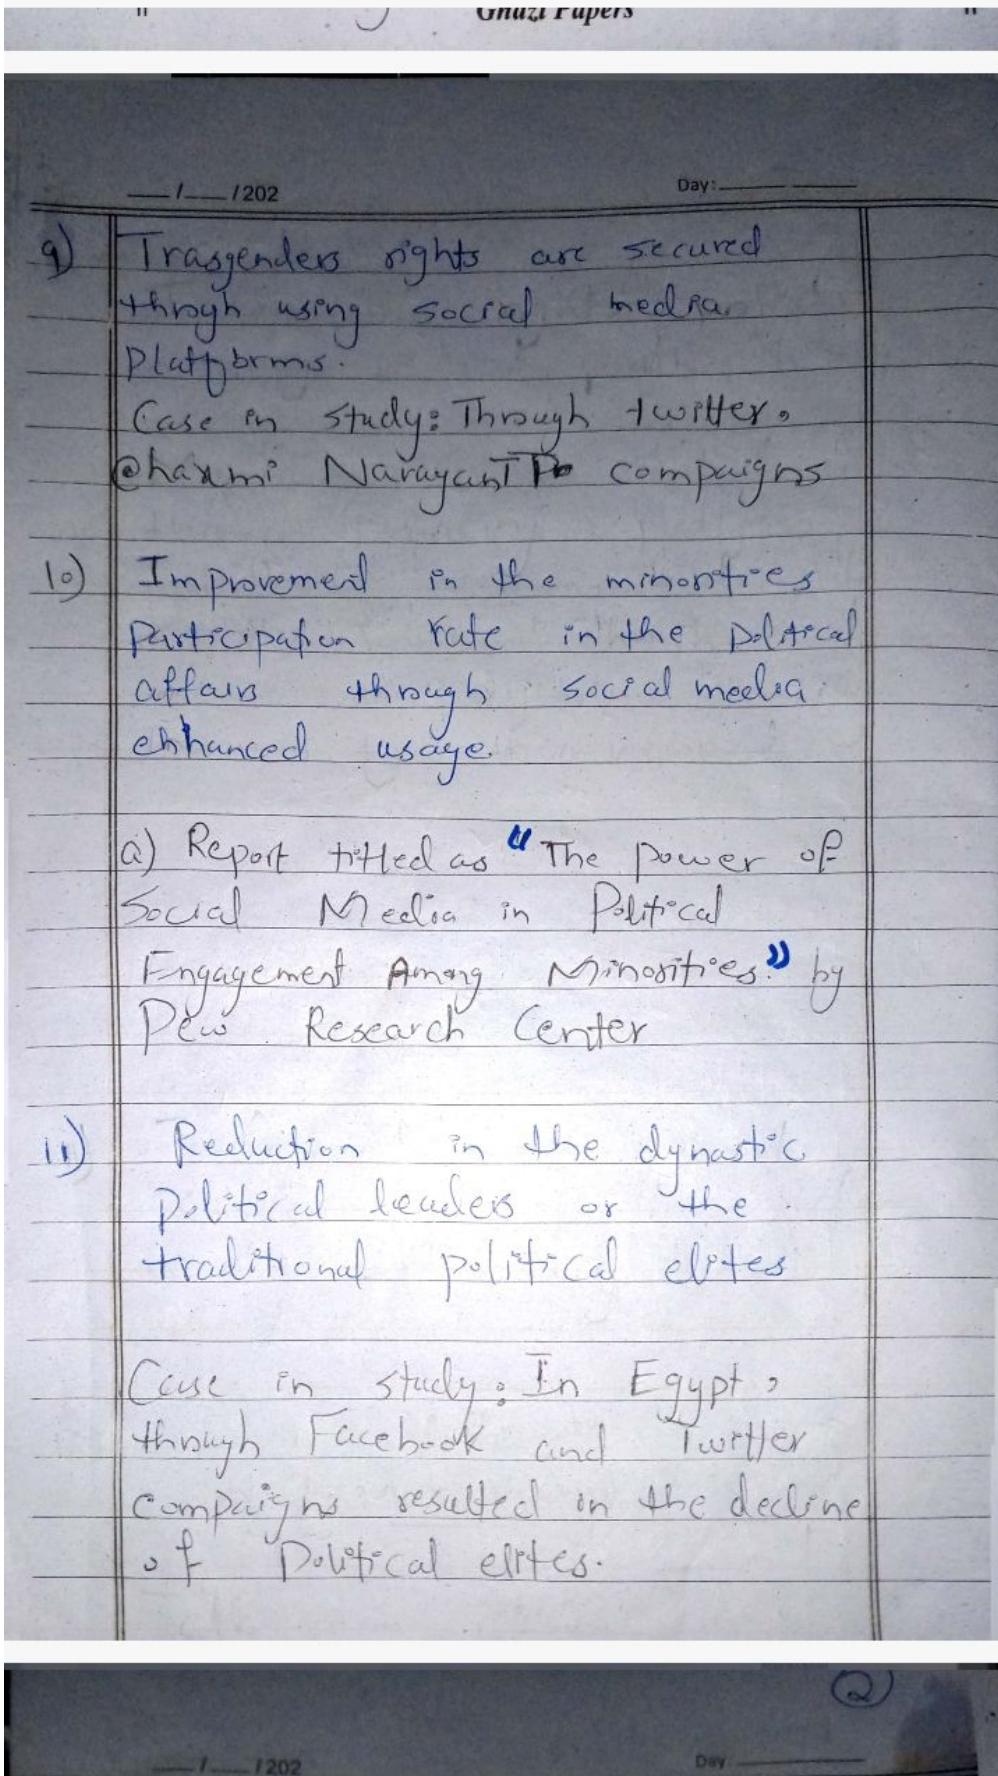 Ghazi Papers
__/__/202 Day:
9) Trasgenders rights are secured
throgh using social media
Platforms.
Case in study: Through twitter,
@haxmi NarayanT compaigns
10) Improvement in the minorities
Participation rate in the political
affairs through social media
enhanced usage.
a) Report titled as "The power of
Social Media in Political
Engagement Among Minorities." by
Pew Research Center
11) Reduction in the dynastic
Political leaders or the
traditional political elites
Case in study: In Egypt,
through Facebook and Twitter
compaigns resulted in the decline
of Political elites.
2
__/__/202 Day